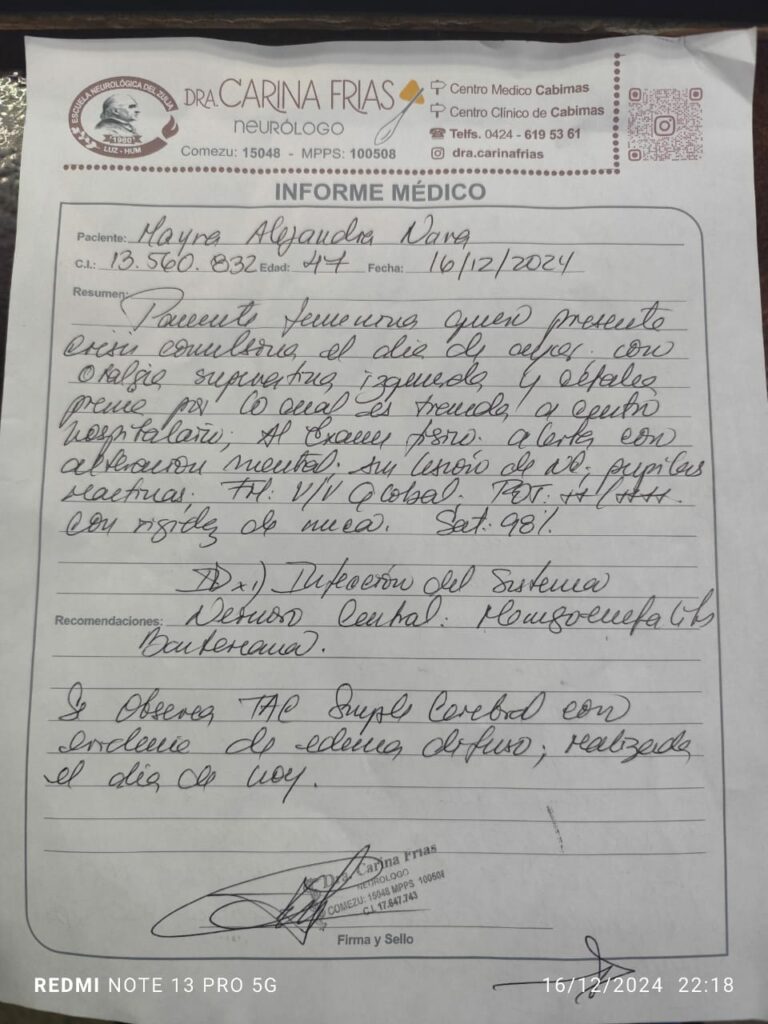 ESCUELA NEUROLÓGICA DEL ZULIA
1960
LUZ - HUM
DRA. CARINA FRIAS
NEURÓLOGO
Comezu: 15048 - MPPS: 100508
Centro Medico Cabimas
Centro Clínico de Cabimas
Telfs. 0424 - 619 53 61
dra.carinafrias
INFORME MÉDICO
Paciente: Mayra Alejandra Nava
C.I.: 13.560.832 Edad: 47 Fecha: 16/12/2024
Resumen:
Paciente femenina quien presenta
crisis convulsiva el día de ayer con
otalgia supurativa izquierda y cefalea
previa por lo cual es traida a centro
hospitalario; Al Examen fisico: alerta con
alteración mental. sin lesión de NC; pupilas
reactivas, FM: V/V Global. ROT: ++/++++.
con rigidez de nuca. Sat: 98%.
IDx 1) Infección del Sistema
Recomendaciones: Nervioso Central: Meningoencefalitis
Bacteriana.
Se Observa TAC Simple Cerebral con
evidencia de edema difuso; realizada
el día de hoy.
Dra. Carina Frias
NEUROLOGO
COMEZU: 15048 MPPS 100508
C.I. 17.647.743
Firma y Sello
REDMI NOTE 13 PRO 5G
16/12/2024 22:18